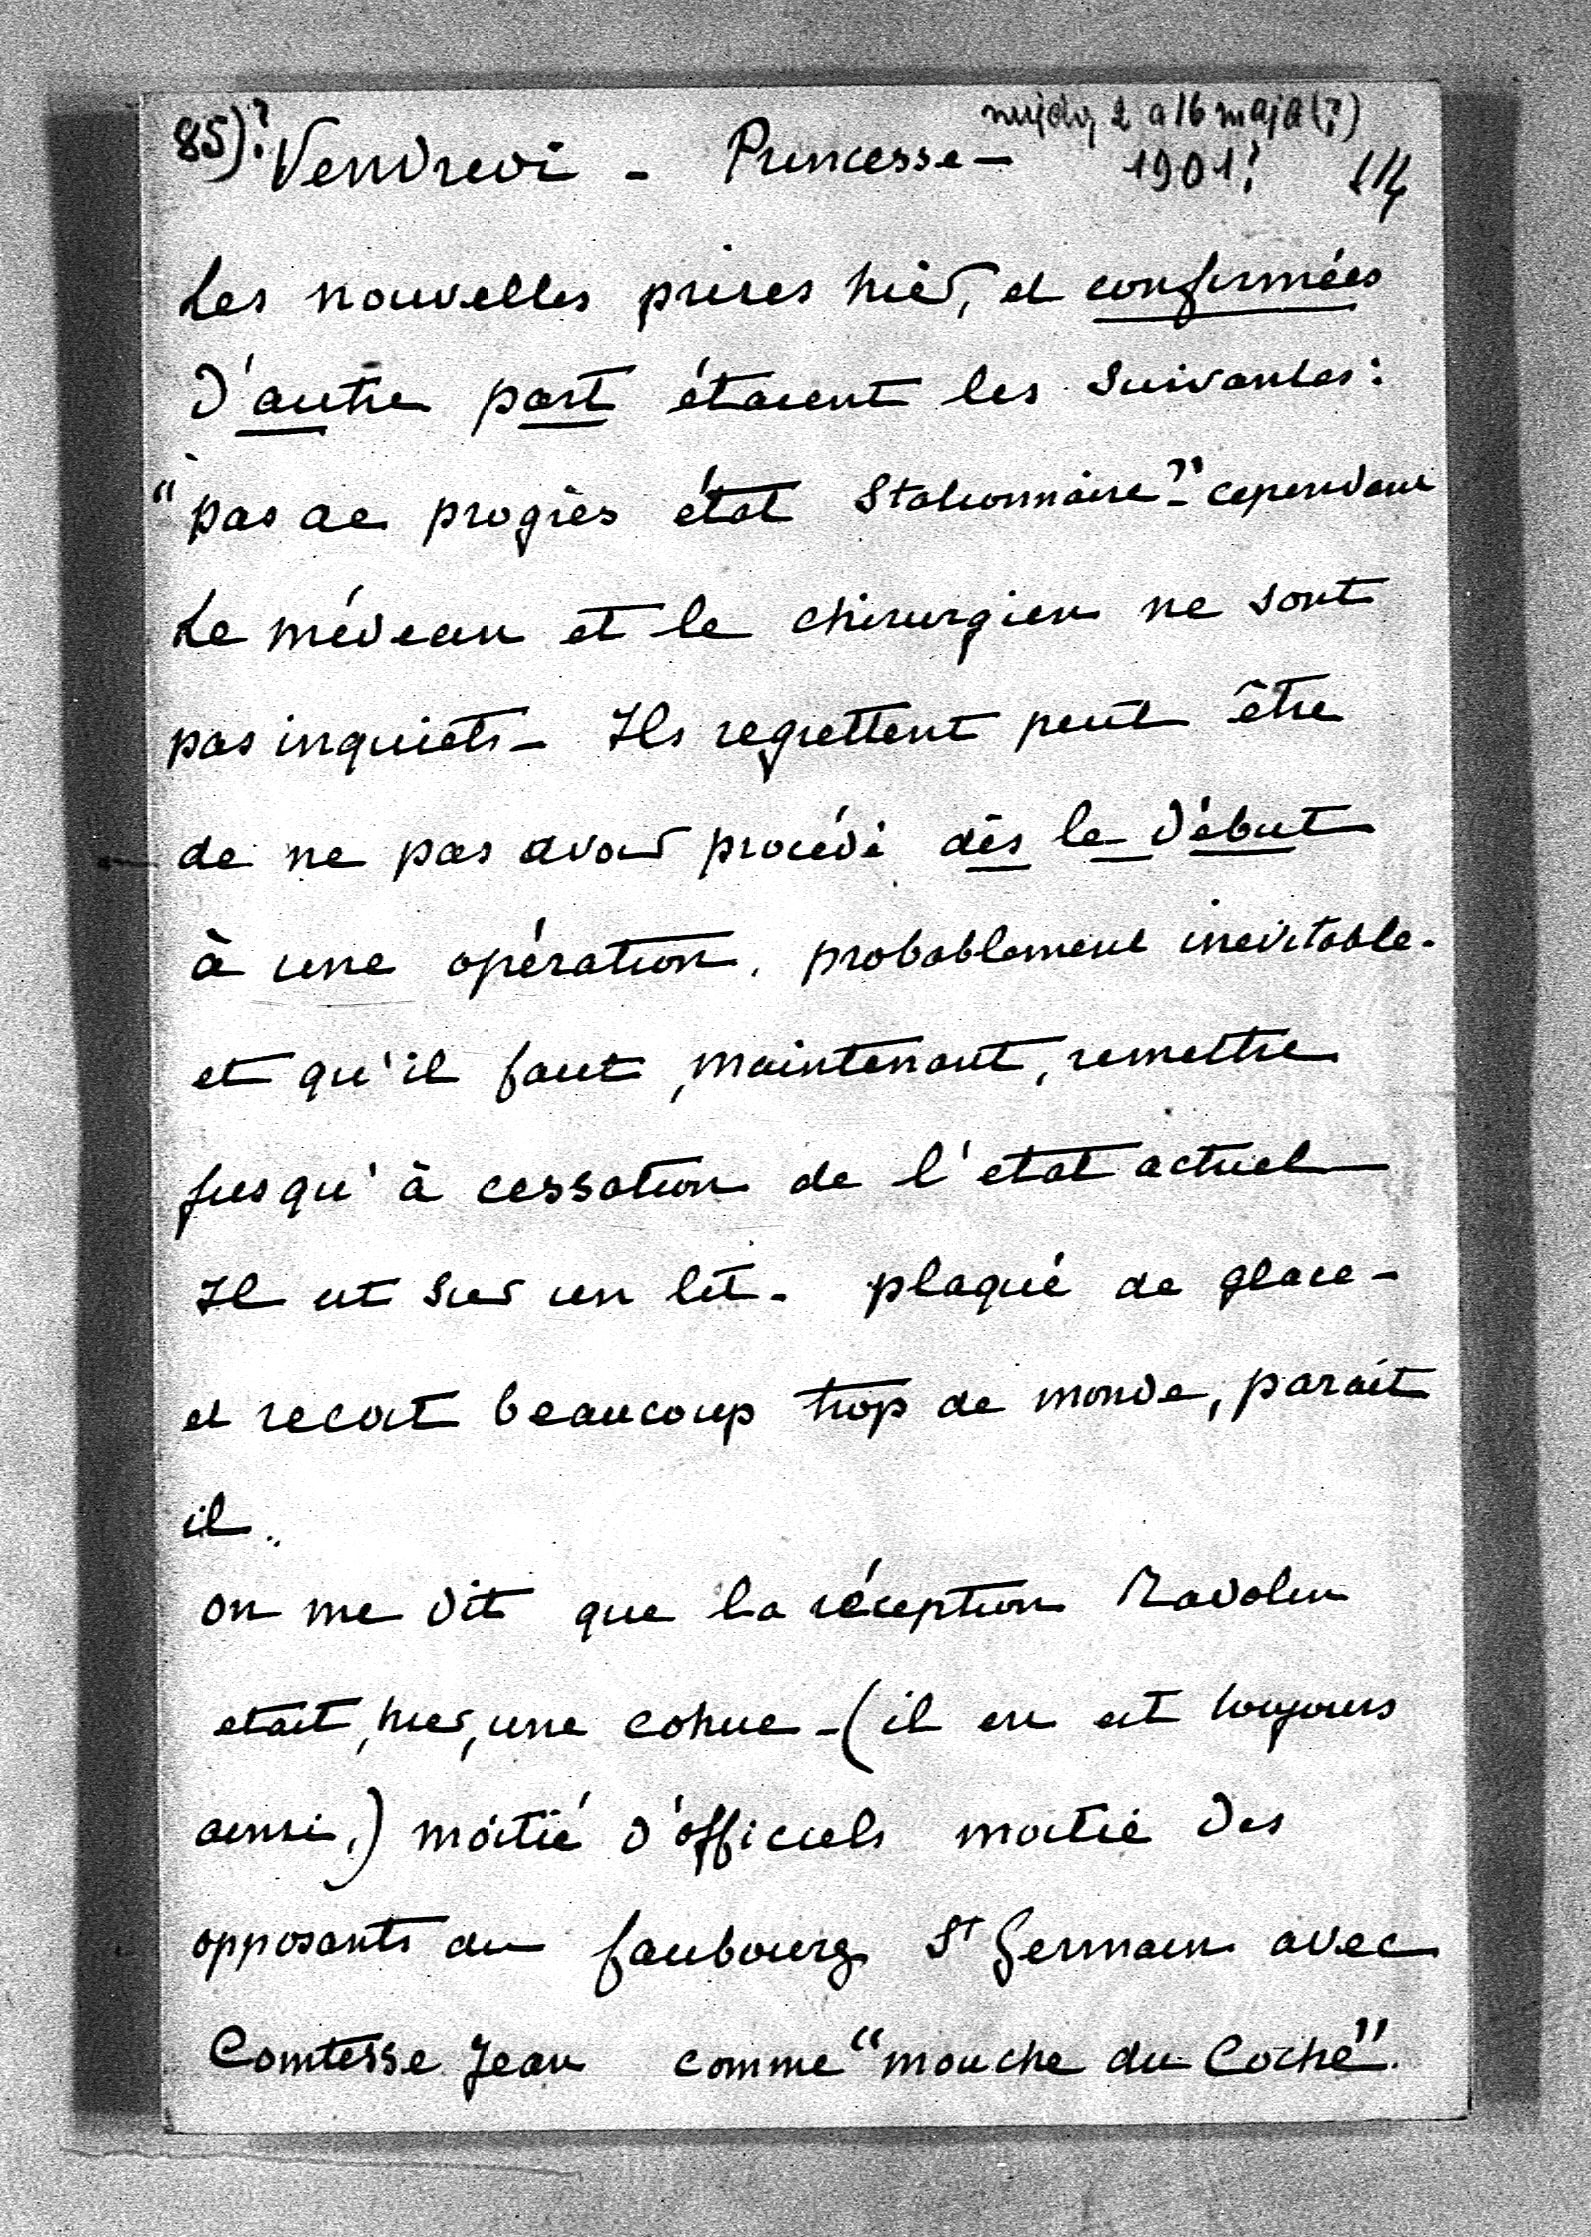 85)? Vendredi - Princesse - między 2 a 16 maja (?)
1901? 114
Les nouvelles prises hier, et confirmées
d'autre part étaient les suivantes:
"pas de progrès état stationnaire"- cependant
Le médecin et le chirurgien ne sont
pas inquiets - Ils regrettent peut être
de ne pas avoir procédé dès le début
à une opération, probablement inévitable -
et qu'il faut, maintenant, remettre
jusqu'à cessation de l'etat actuel
Il est sur un lit - plaqué de glace -
et recoit beaucoup trop de monde, parait
il.
on me dit que la réception Radolin
etait, hier, une cohue - (il en est toujours
ainsi.) moitié d'officiels moitié des
opposants du faubourg St Germain avec
Comtesse Jean comme "mouche du Coche".